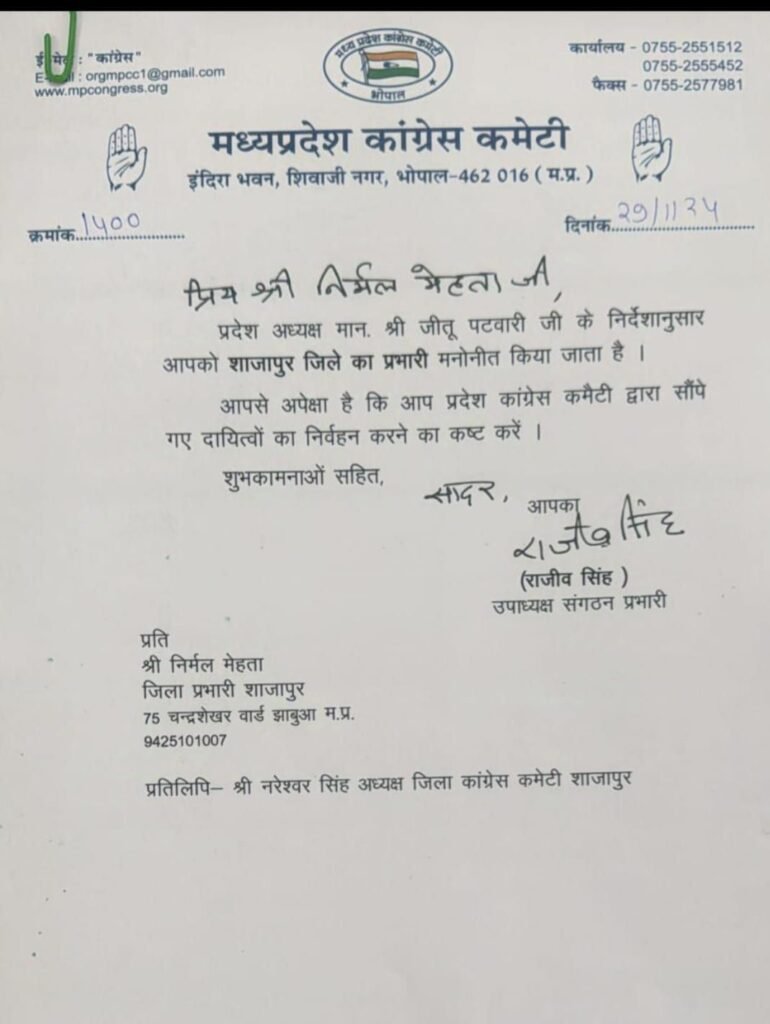 ई मेल : "कांग्रेस"
E-mail : orgmpcc1@gmail.com
www.mpcongress.org
मध्य प्रदेश कांग्रेस कमेटी
भोपाल
कार्यालय - 0755-2551512
0755-2555452
फैक्स - 0755-2577981
मध्यप्रदेश कांग्रेस कमेटी
इंदिरा भवन, शिवाजी नगर, भोपाल-462 016 ( म.प्र. )
क्रमांक 1400
दिनांक 29/11/24
प्रिय श्री निर्मल मेहता जी,
प्रदेश अध्यक्ष मान. श्री जीतू पटवारी जी के निर्देशानुसार
आपको शाजापुर जिले का प्रभारी मनोनीत किया जाता है ।
आपसे अपेक्षा है कि आप प्रदेश कांग्रेस कमैटी द्वारा सौंपे
गए दायित्वों का निर्वहन करने का कष्ट करें ।
शुभकामनाओं सहित,
सादर,
आपका
राजीव सिंह
(राजीव सिंह )
उपाध्यक्ष संगठन प्रभारी
प्रति
श्री निर्मल मेहता
जिला प्रभारी शाजापुर
75 चन्द्रशेखर वार्ड झाबुआ म.प्र.
9425101007
प्रतिलिपि– श्री नरेश्वर सिंह अध्यक्ष जिला कांग्रेस कमेटी शाजापुर